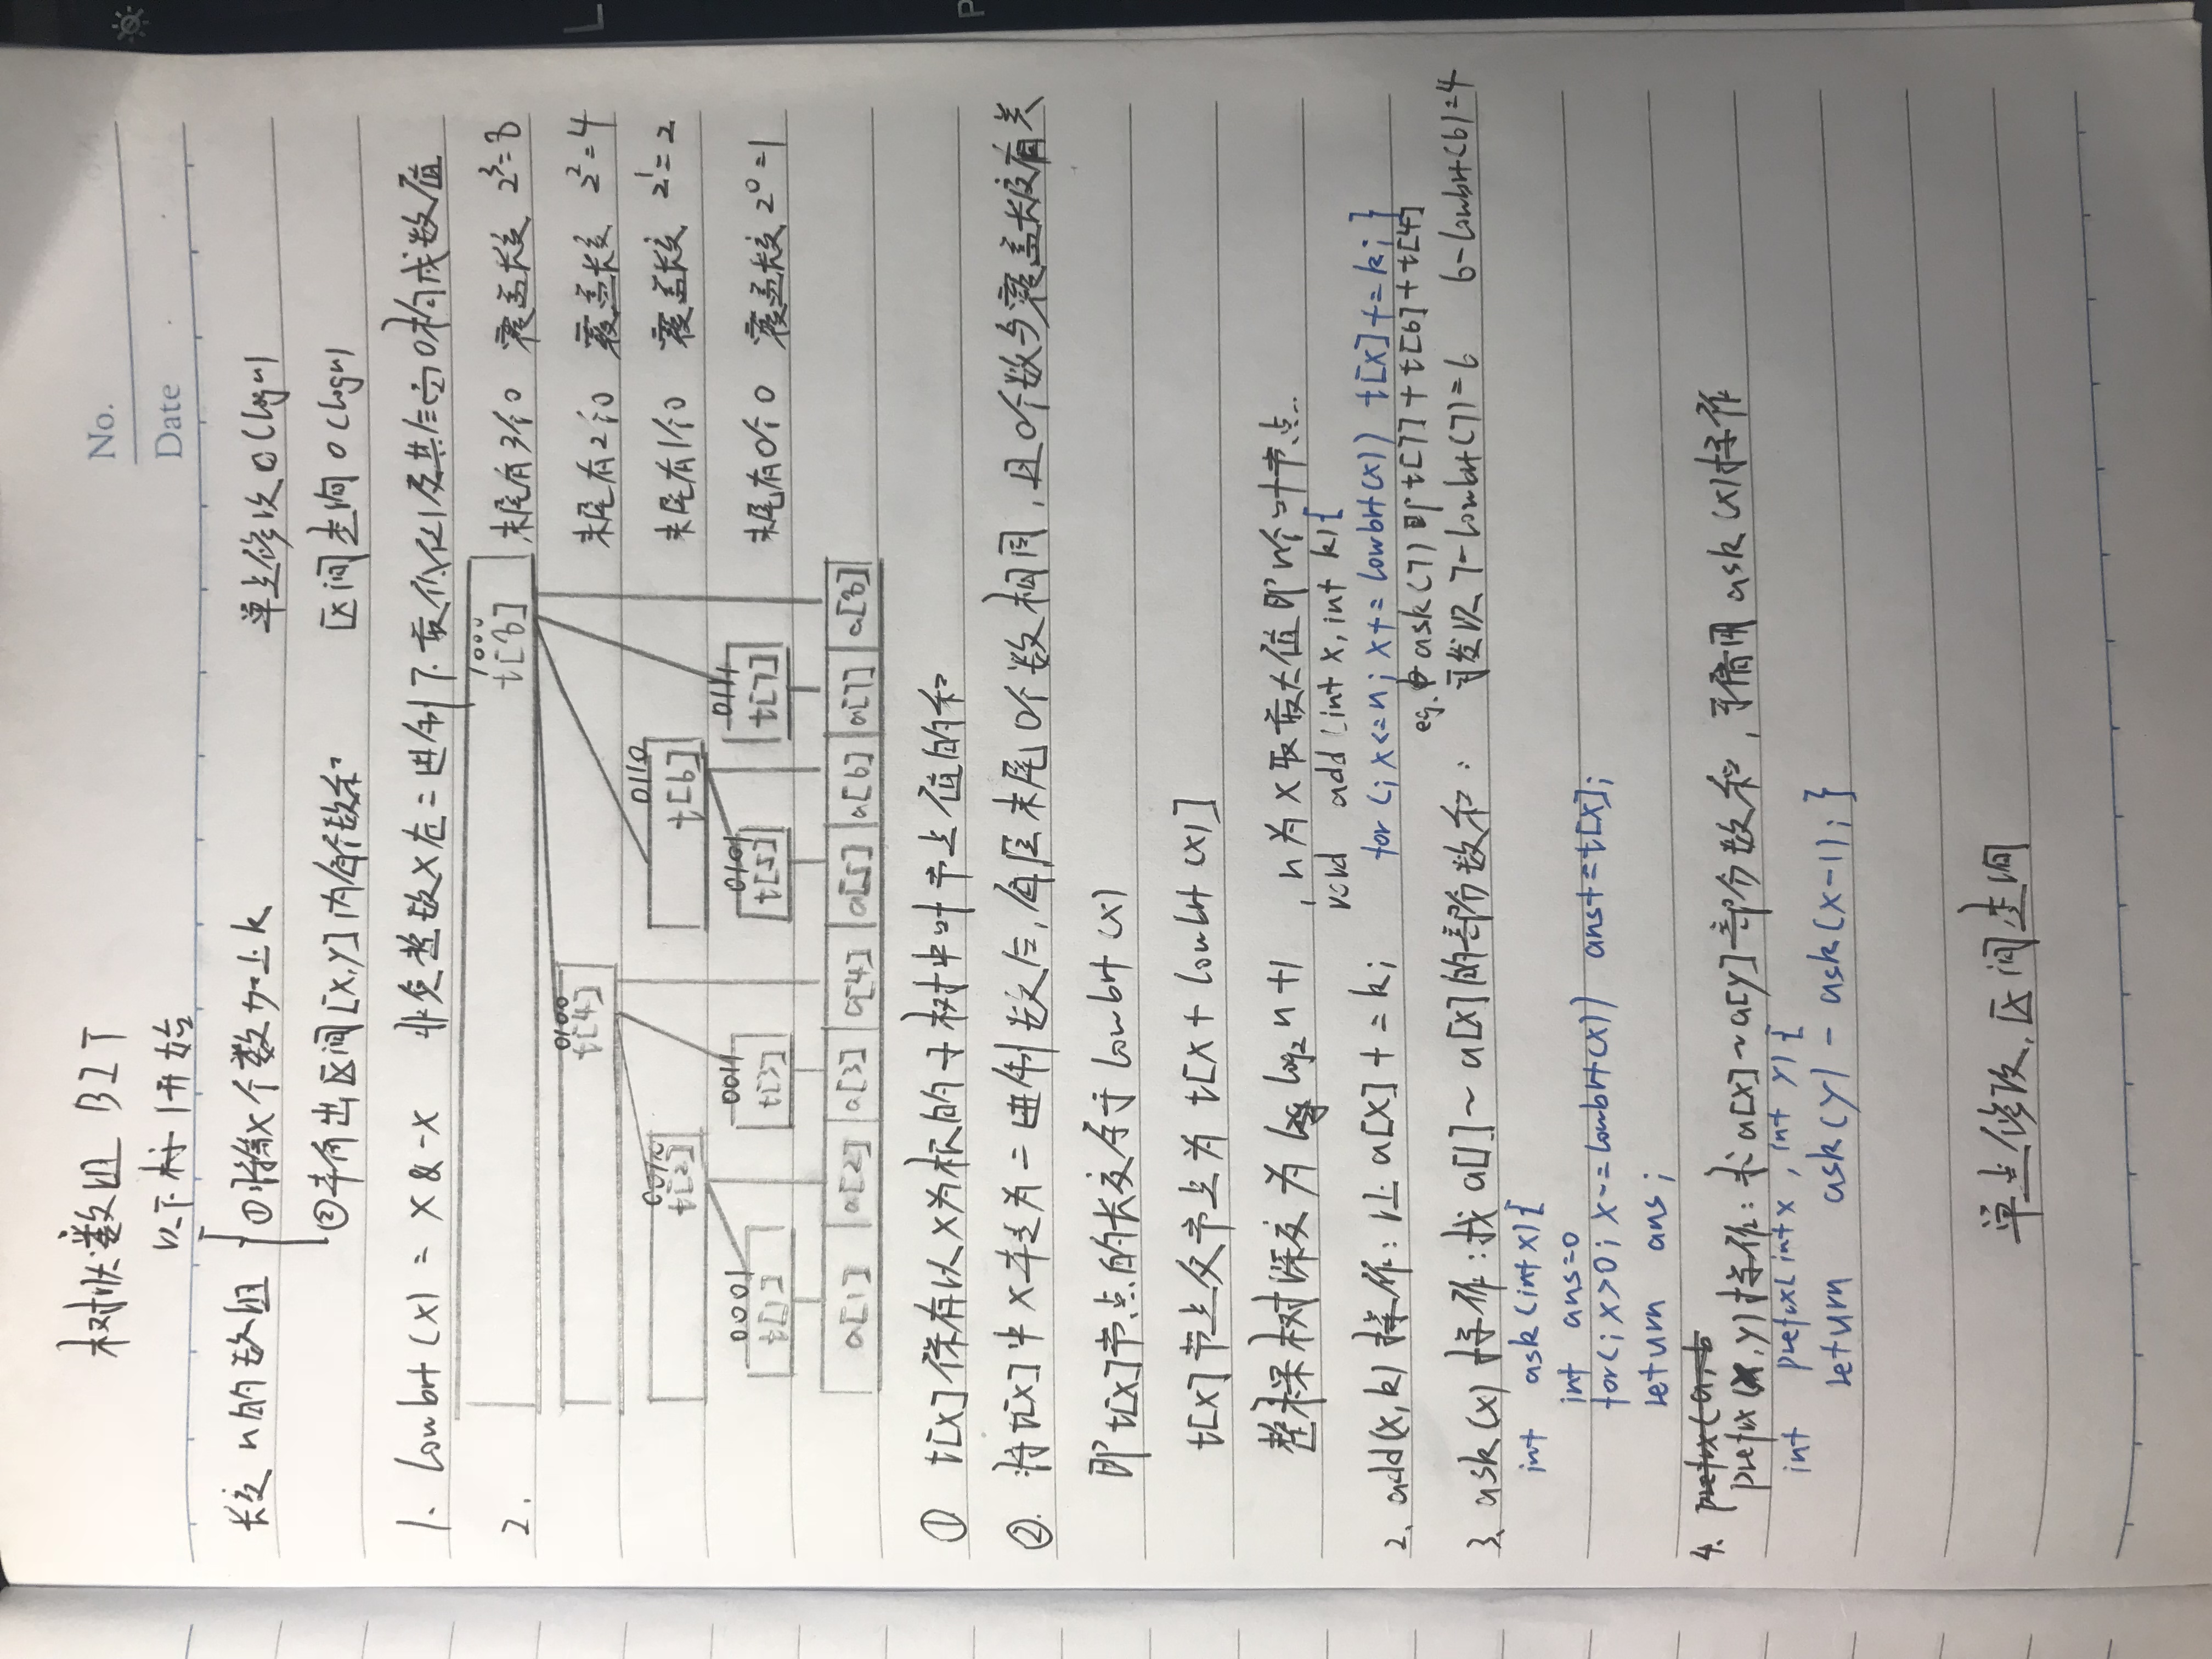 树状数组 BIT
以下标1开始
No.
Date
长度n的数组 ①将第x个数加上k 单点修改 O(logn)
②求输出区间[x,y]内每个数和 区间查询 O(logn)
1. lowbit(x) = x & -x 非负整数x在二进制下最低位1及其后面0构成数值
2.
1000
t[8] 末尾有3个0 覆盖长度 2³=8
0100
t[4] 末尾有2个0 覆盖长度 2²=4
0010 0110
t[2] t[6] 末尾有1个0 覆盖长度 2¹=2
0001 0011 0101 0111
t[1] t[3] t[5] t[7] 末尾有0个0 覆盖长度 2⁰=1
a[1] a[2] a[3] a[4] a[5] a[6] a[7] a[8]
① t[x]保存以x为根的子树中叶节点值的和
②. 将t[x]中x转为二进制数后,每层末尾0个数相同,且0个数与覆盖长度有关
即t[x]节点的长度等于lowbit(x)
t[x]节点父节点为 t[x + lowbit(x)]
整棵树深度为 log₂n+1 ,n为x取最大值即n个叶节点.
void add(int x, int k){
2. add(x,k)操作:让 a[x] += k; for(; x<=n; x+=lowbit(x)) t[x]+=k; }
eg. ask(7)即t[7]+t[6]+t[4]
3. ask(x)操作:找a[1]~a[x]的部分数和: 可发现 7-lowbit(7)=6 6-lowbit(6)=4
int ask(int x){
int ans=0
for(; x>0; x-=lowbit(x)) ans+=t[x];
return ans;
4. prefix(a, b
prefix(x,y)操作:求a[x]~a[y]部分数和,可借用ask(x)操作
int prefix(int x, int y){
return ask(y) - ask(x-1); }
单点修改,区间查询